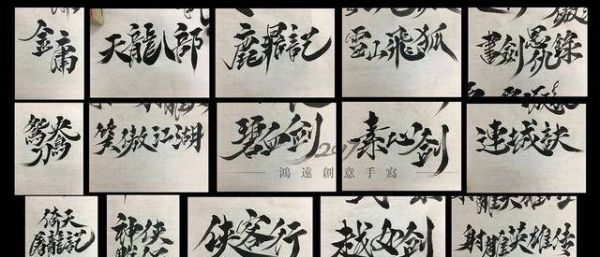 金庸
天龍八部
鹿鼎記
雪山飛狐
書劍恩仇錄
鴛鴦刀
笑傲江湖
碧血剑
素心剑
連城訣
2017
鴻遠創意手寫
倚天
屠龍記
神侠
侠客行
越女剑
射雕英雄传